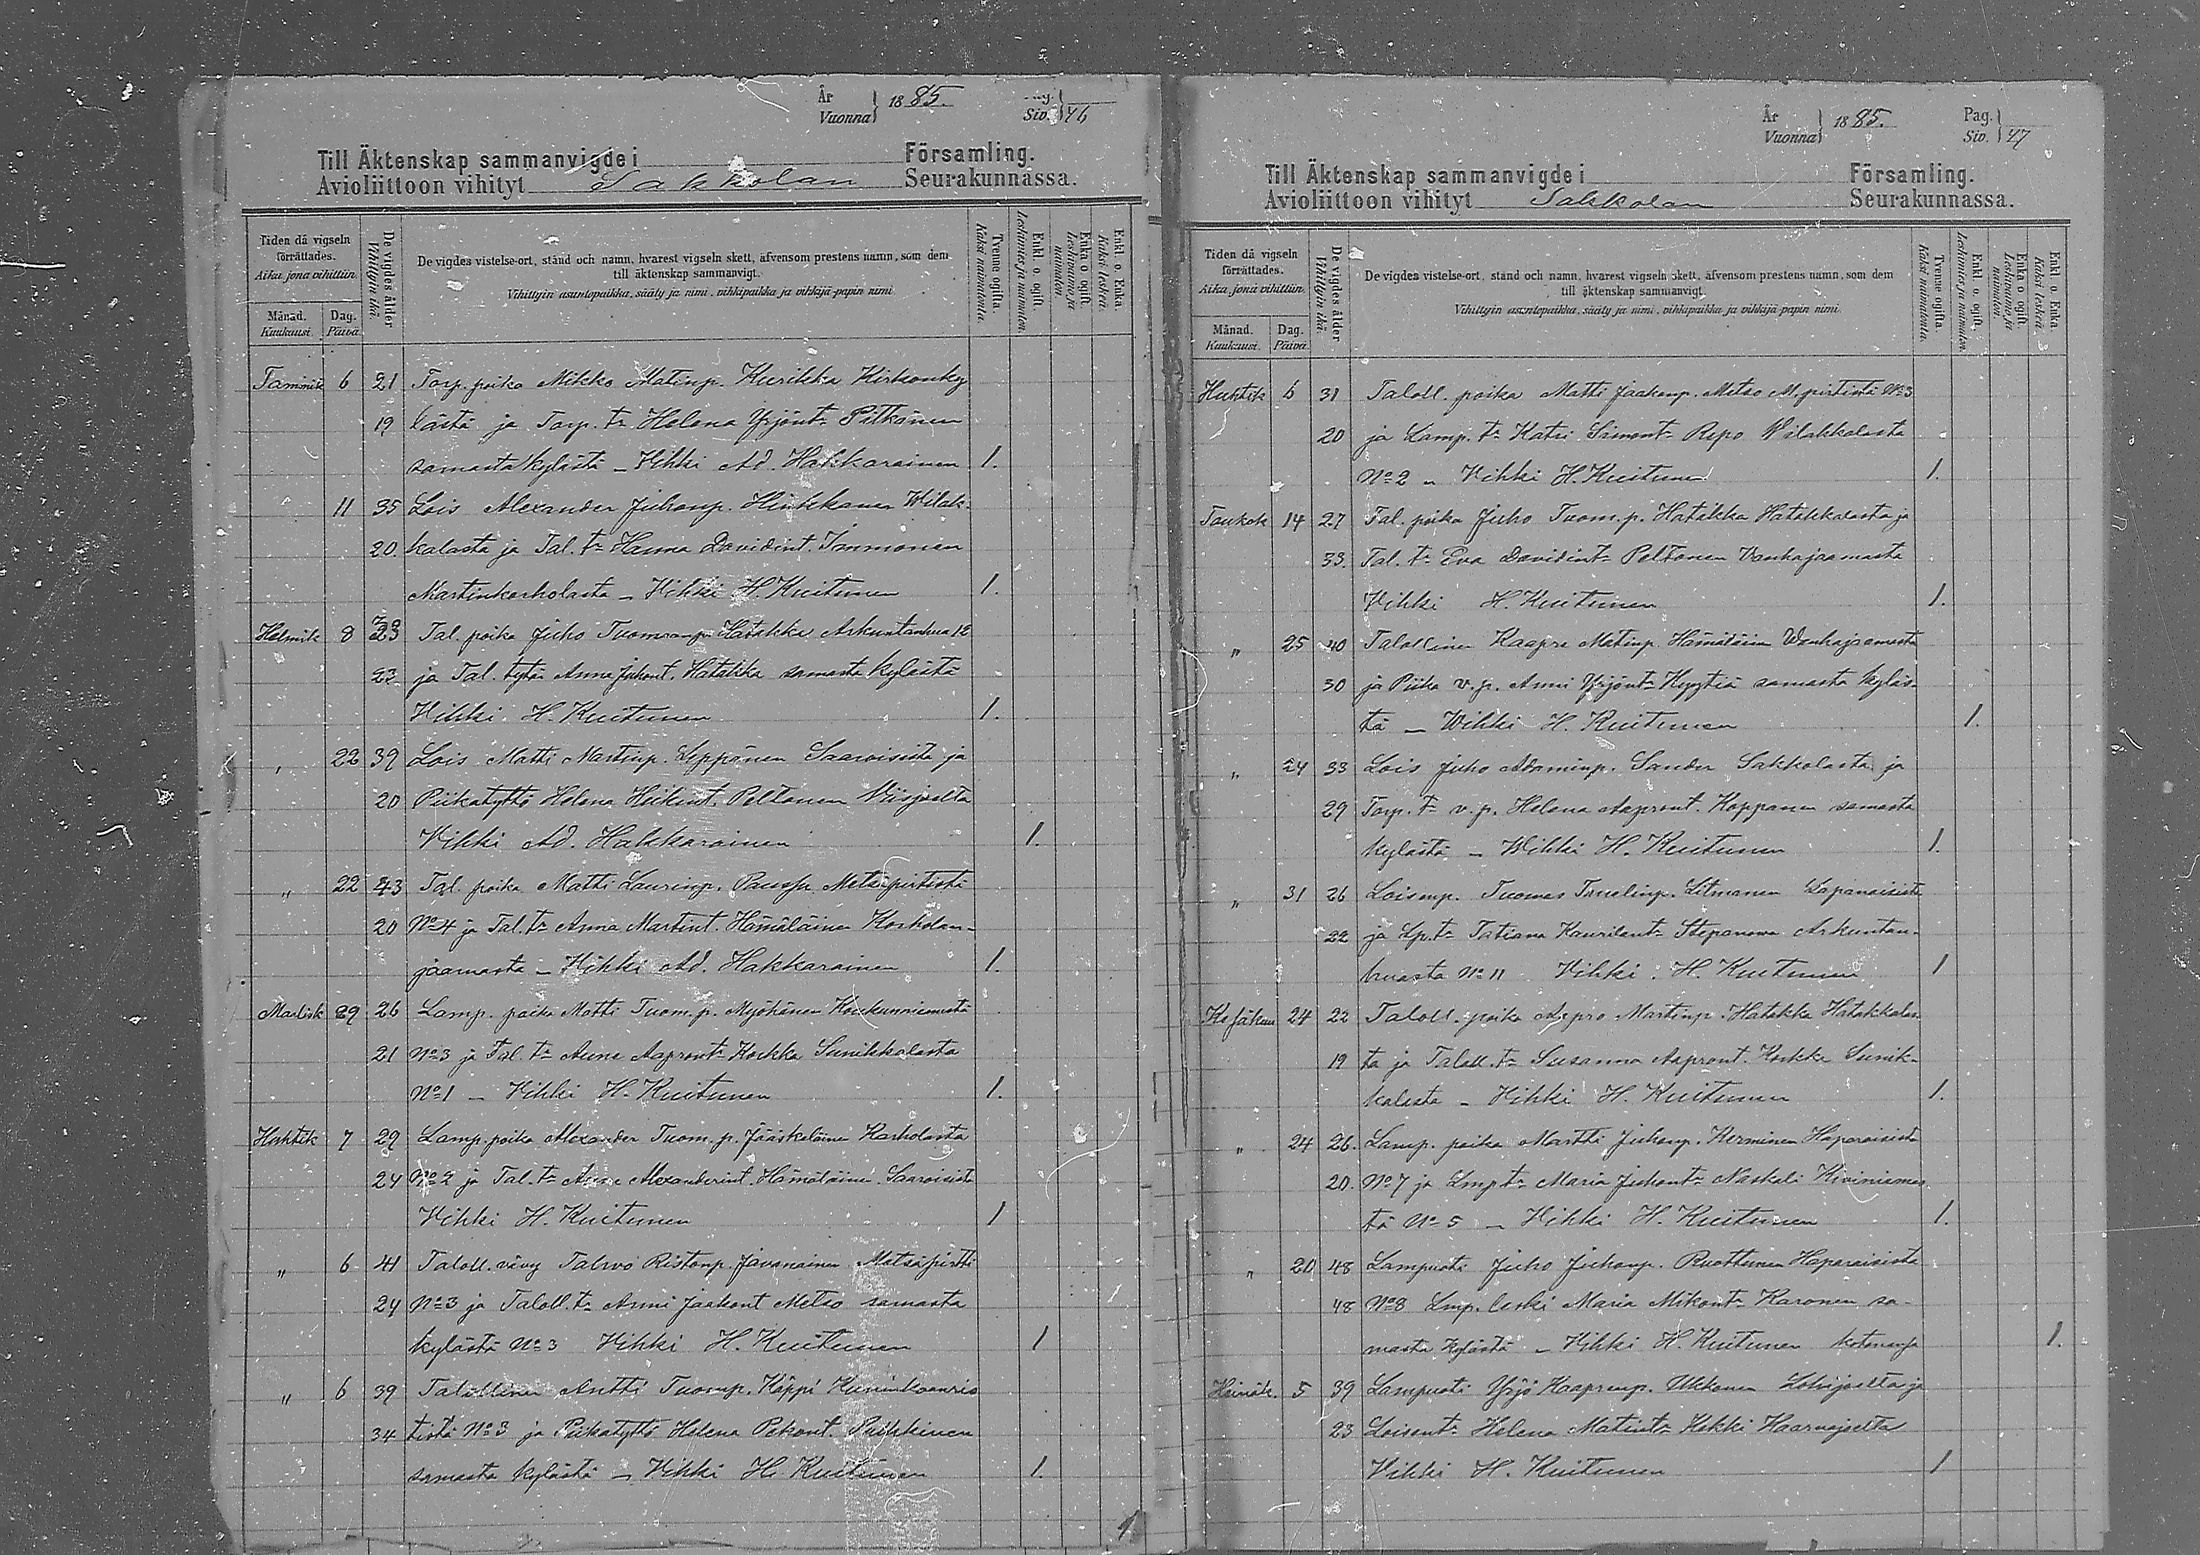 År
Vuonna 1885.
Siv. 46
Till Äktenskap sammanvigde i Församling.
Avioliittoon vihityt Sakkolan Seurakunnassa.
Tiden då vigseln förrättades.
Aika, jona vihittiin.
Månad. Kuukausi.
Dag. Päivä.
De vigdes ålder
Vihittyin ikä.
De vigdes vistelse-ort, stånd och namn, hvarest vigseln skett, äfvensom prestens namn, som dem
till äktenskap sammanvigt.
Vihittyin asuntopaikka, sääty ja nimi, vihkipaikka ja vihkijä-papin nimi
Tvenne ogifta. Kaksi naimatonta.
Enkl. o. ogift. Leskimies ja naimaton.
Enka o. ogift. Leskivaimo ja naimaton.
Enkl. o. Enka. Kaksi leskeä.
Tammik 6 21 Torp. poika Mikko Matinp. Kurikka Kirkonky
19 lästä ja Torp. tr Helena Yrjönt. Pitkänen
samasta kylästä – Vihki Ad. Hakkarainen 1.
11 35 Lois Alexander Juhonp. Hinkkanen Wilak-
20 kalasta ja Tal. tr Hanna Davidint. Immonen
Martinkarholasta – Vihki H. Kuitunen 1.
Helmik 8 23 Tal. poika Juho Tuomaanp. Hatakka Arkuntanhua 12
23 ja Tal. tytär Anna Juhont. Hatakka samasta kylästä
Vihki H. Kuitunen 1.
22 39 Lois Matti Martinp. Leppänen Saaroisista ja
20 Piikatyttö Helena Heikint. Peltonen Viisjoelta
Vihki Ad. Hakkarainen 1.
„ 22 43 Tal. poika Matti Laurinp. Paussu Metsäpirtistä
20 No 4 ja Tal. tr Anna Martint. Hämäläinen Korholan-
jaamasta – Vihki Ad. Hakkarainen 1.
Maalisk 29 26 Lamp. poika Matti Tuom. p. Myöhänen Koukunniemestä
21 No 3 ja Tal. tr Anna Aapront. Koukka Sunikkalasta
No 1 – Vihki H. Kuitunen 1.
Huhtik 7 29 Lamp. poika Alexander Tuom. p. Jääskeläinen Karholasta
24 No 2 ja Tal. tr Anna Alexanderint. Hämäläinen Saaroisista
Vihki H. Kuitunen 1
„ 6 41 Taloll. vävy Ristonp. Javanainen Metsäpirtti
24 No 3 ja Taloll. tr Anni Jaakont Metso samasta
kylästä No 3 Vihki H. Kuitunen 1
„ 6 39 Talollinen Antti Tuomp. Käppi
34 tistä No 3 ja Piikatyttö Helena Pekont. Puikkinen
samasta kylästä – Vihki H. Kuitunen 1.
År
Vuonna 1885.
Pag.
Siv. 47
Till Äktenskap sammanvigde i Församling.
Avioliittoon vihityt Sakkolan Seurakunnassa.
Tiden då vigseln förrättades.
Aika, jona vihittiin.
Månad. Kuukausi.
Dag. Päivä.
De vigdes ålder
Vihittyin ikä.
De vigdes vistelse-ort, stånd och namn, hvarest vigseln skett, äfvensom prestens namn, som dem
till äktenskap sammanvigt.
Vihittyin asuntopaikka, sääty ja nimi, vihkipaikka ja vihkijä-papin nimi
Tvenne ogifta. Kaksi naimatonta.
Enkl. o. ogift. Leskimies ja naimaton.
Enka o. ogift. Leskivaimo ja naimaton.
Enkl. o. Enka. Kaksi leskeä.
Huhtik 6 31 Taloll. poika Matti Jaakonp. Metso M. pirtistä No 3
20 ja Lamp. tr Katri Simont. Repo Wilakkalasta
No 2 – Vihki H. Kuitunen 1.
Toukok 14 27 Tal. poika Juho Tuom. p. Hatakka Hatakkalasta ja
33. Tal. tr Eva Davidint. Peltonen Vanhajaamasta
Vihki H. Kuitunen 1.
„ 25 40 Talollinen Kaapre Matinp. Hämäläinen Wanhajaamasta
30 ja Piika v. p. Anni Yrjönt. Kyytiä samasta kyläs-
tä – Wihki H. Kuitunen 1.
„ 24 33 Lois Juho Adaminp. Sander Sakkolasta ja
29 Torp. tr v. p. Helena Aapront. Koppanen samasta
kylästä – Wihki H. Kuitunen 1.
„ 31 26 Loisenp. Tuomas Litmanen Lapanaisista
22 ja Lp. tr Tatiana Kaurilant. Stepanova Arkuntan-
huasta No 11 Vihki H. Kuitunen 1
Kesäkuu 24 22 Taloll. poika Aapro Martinp. Hatakka Hatakkalas-
19 ta ja Taloll. tr Susanna Aapront. Koukka Sunik-
kalasta – Vihki H. Kuitunen 1.
„ 24 26. Lamp. poika Martti Juhonp. Kerminen Haparaisista
20. No 7 ja Lmp tr Maria Juhont. Naskali Kiviniemes
tä No 5 – Vihki H. Kuitunen 1.
„ 20 48 Lampuoti Juho Juhonp. Ruottinen Haparaisista
48 No 8 Lmp. leski Maria Mikont. Karonen sa-
masta kylästä – Vihki H. Kuitunen kotonansa 1.
Heinäk. 5 39 Lampuoti Yrjö Kaaprenp. Ukkonen Lohijoelta ja
23 Loisent. Helena Matint. Kekki Haarnajoelta
Vihki H. Kuitunen 1